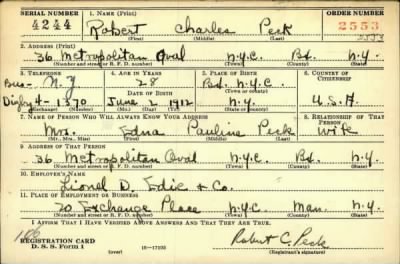 SERIAL NUMBER 1. NAME (Print) ORDER NUMBER
4244 Robert Charles Peck 2553
(First) (Middle) (Last) 2553
2. ADDRESS (Print)
36 Metropolitan Oval N.Y.C. Bx. N.Y.
(Number and street or R. F. D. number) (Town) (County) (State)
3. TELEPHONE 4. AGE IN YEARS 5. PLACE OF BIRTH 6. COUNTRY OF CITIZENSHIP
Bus- N.Y 28 Bx. N.Y.C.
DATE OF BIRTH (Town or county)
Digby 4-1570 June 2 1912 N.Y. U.S.A.
(Exchange) (Number) (Mo.) (Day) (Yr.) (State or country)
7. NAME OF PERSON WHO WILL ALWAYS KNOW YOUR ADDRESS 8. RELATIONSHIP OF THAT PERSON
Mrs. Edna Pauline Peck Wife
(Mr., Mrs., Miss) (First) (Middle) (Last)
9. ADDRESS OF THAT PERSON
36 Metropolitan Oval N.Y.C. Bx. N.Y.
(Number and street or R. F. D. number) (Town) (County) (State)
10. EMPLOYER'S NAME
Lionel D. Edie & Co.
11. PLACE OF EMPLOYMENT OR BUSINESS
20 Exchange Place N.Y.C. Man. N.Y.
(Number and street or R. F. D. number) (Town) (County) (State)
I AFFIRM THAT I HAVE VERIFIED ABOVE ANSWERS AND THAT THEY ARE TRUE.
REGISTRATION CARD Robert C. Peck
D. S. S. Form 1 (over) 16—17105 (Registrant's signature)